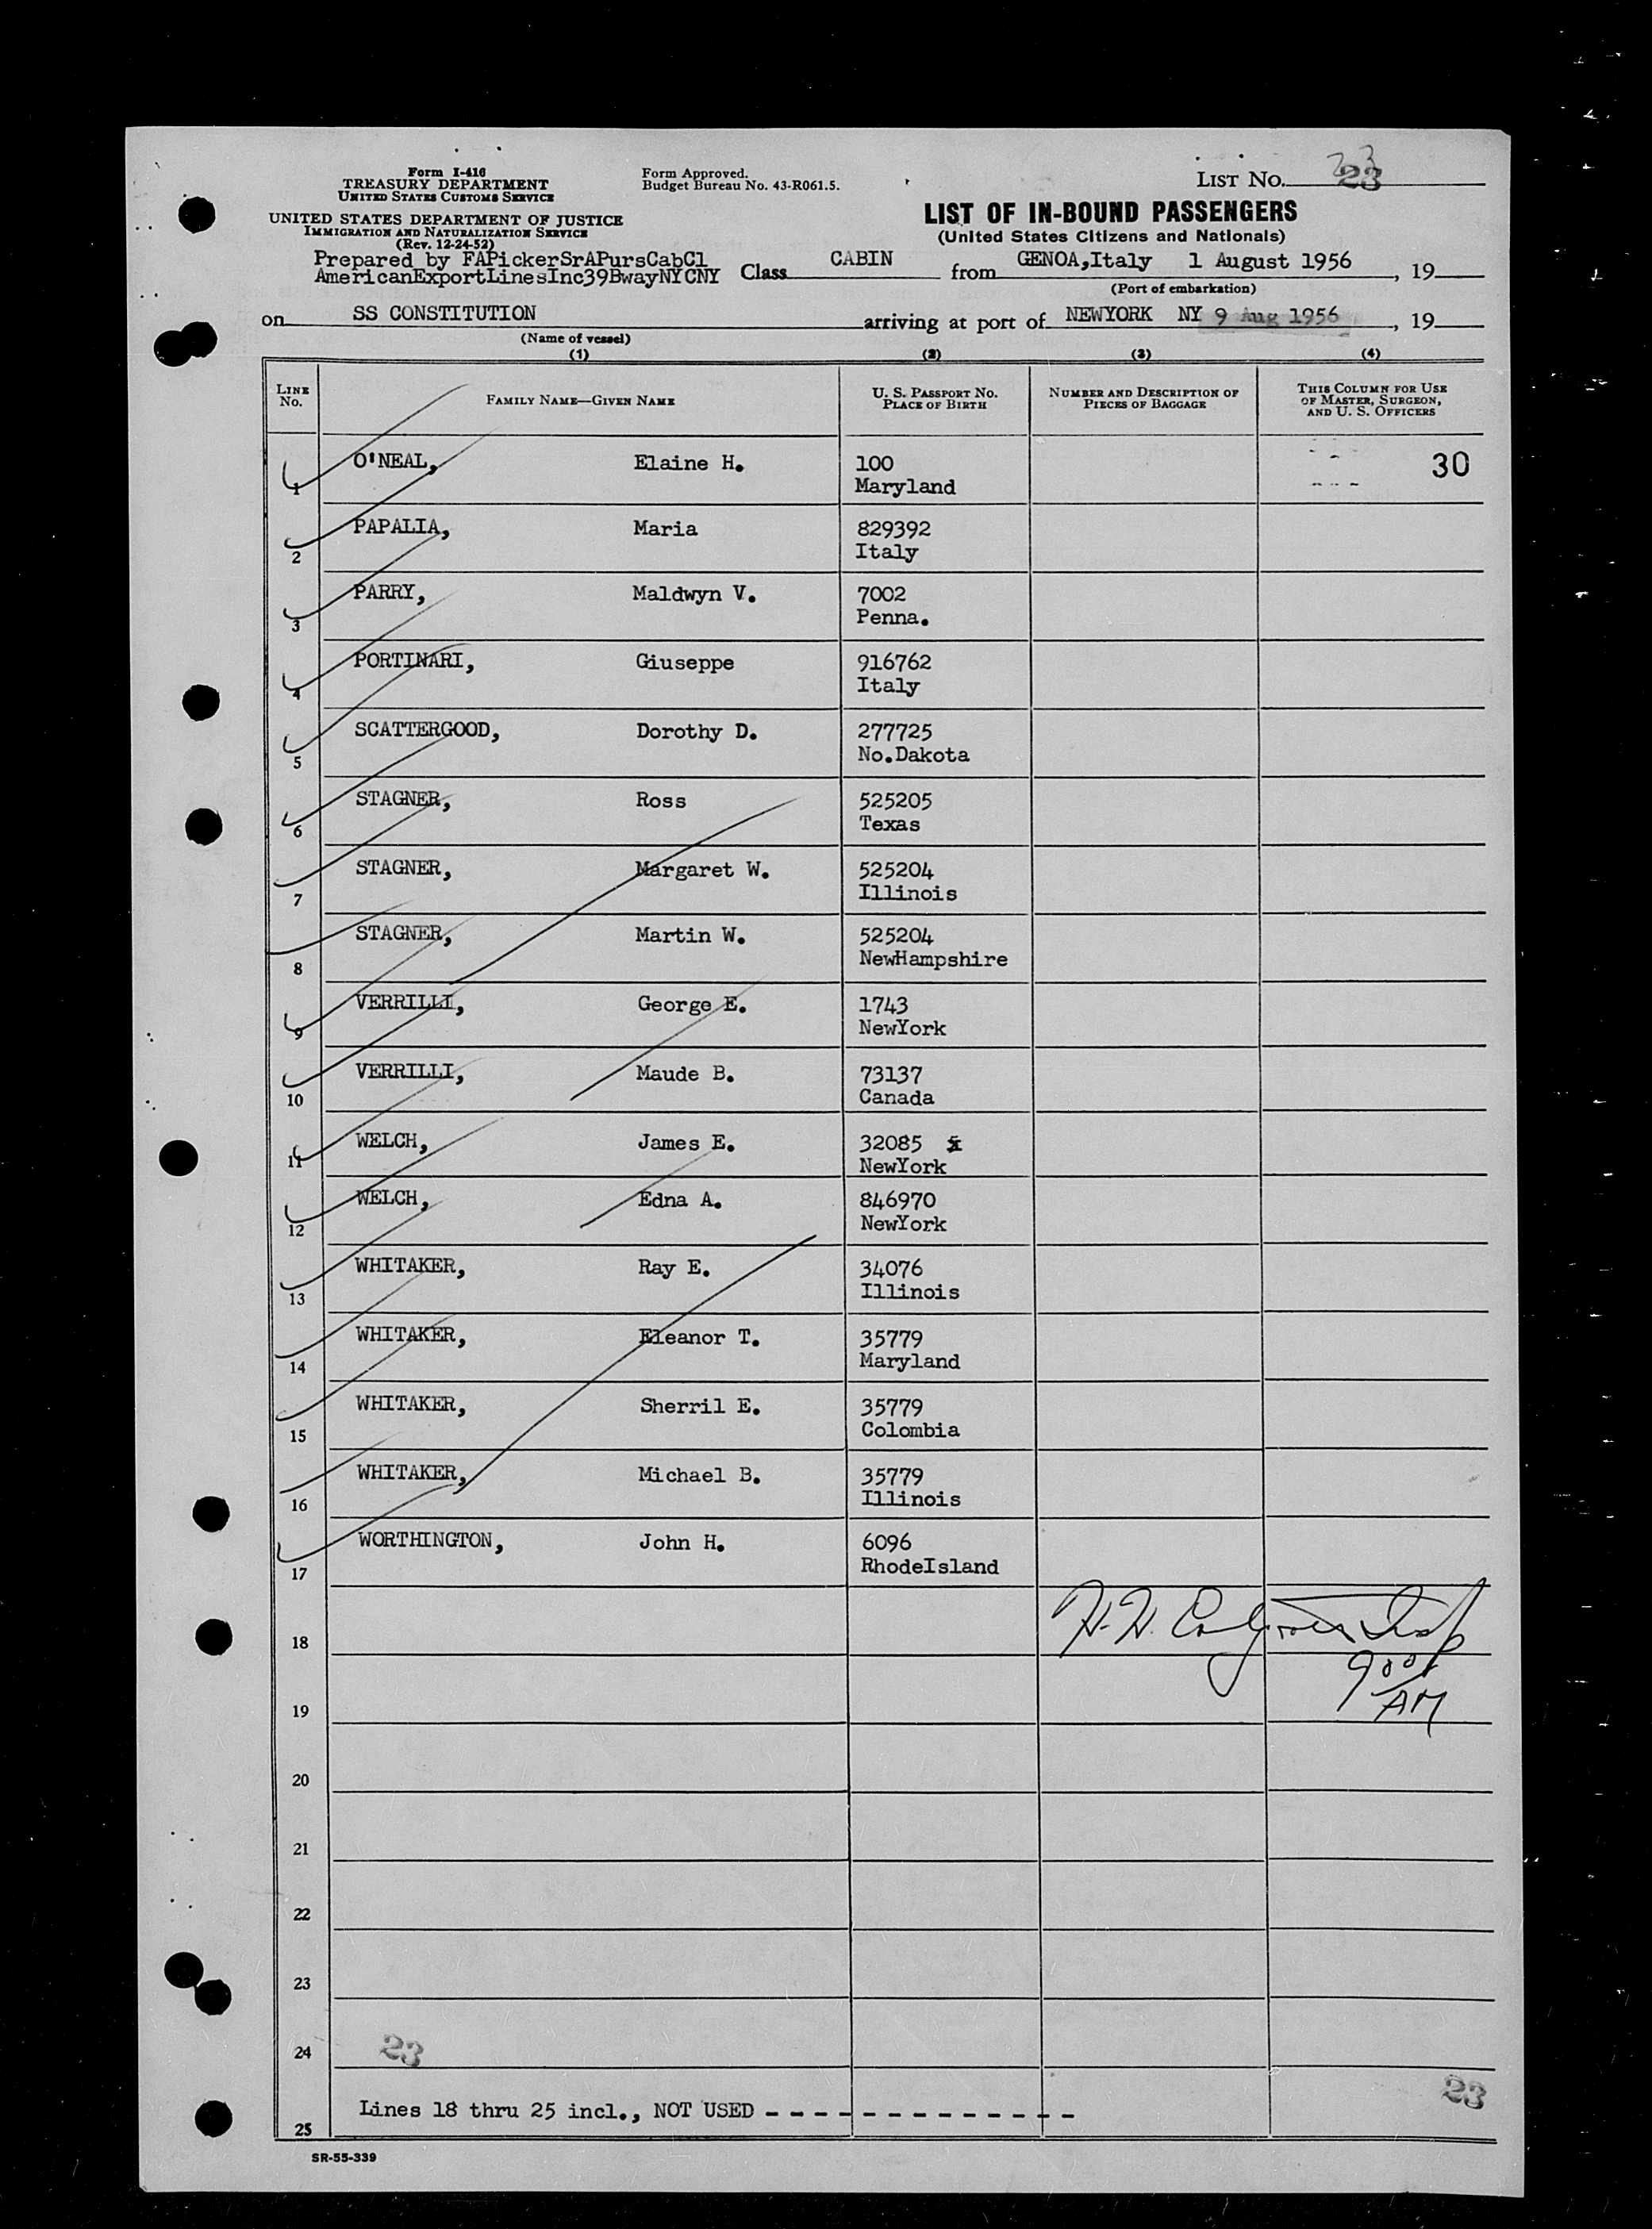 Form I-416
TREASURY DEPARTMENT
UNITED STATES CUSTOMS SERVICE
UNITED STATES DEPARTMENT OF JUSTICE
IMMIGRATION AND NATURALIZATION SERVICE
(Rev. 12-24-52)
Form Approved.
Budget Bureau No. 43-R061.5.
LIST NO. 23
LIST OF IN-BOUND PASSENGERS
(United States Citizens and Nationals)
Prepared by FAPickerSrAPursCabCl
AmericanExportLinesInc39BwayNYCNY
Class CABIN from GENOA,Italy 1 August 1956, 19
(Port of embarkation)
on SS CONSTITUTION arriving at port of NEWYORK NY 9 Aug 1956, 19
(Name of vessel)
(1) (2) (3) (4)
LINE NO. FAMILY NAME—GIVEN NAME U. S. PASSPORT NO. PLACE OF BIRTH NUMBER AND DESCRIPTION OF PIECES OF BAGGAGE THIS COLUMN FOR USE OF MASTER, SURGEON, AND U. S. OFFICERS
1 O'NEAL, Elaine H. 100 30
Maryland
2 PAPALIA, Maria 829392
Italy
3 PARRY, Maldwyn V. 7002
Penna.
4 PORTINARI, Giuseppe 916762
Italy
5 SCATTERGOOD, Dorothy D. 277725
No.Dakota
6 STAGNER, Ross 525205
Texas
7 STAGNER, Margaret W. 525204
Illinois
8 STAGNER, Martin W. 525204
NewHampshire
9 VERRILLI, George E. 1743
NewYork
10 VERRILLI, Maude B. 73137
Canada
11 WELCH, James E. 32085
NewYork
12 WELCH, Edna A. 846970
NewYork
13 WHITAKER, Ray E. 34076
Illinois
14 WHITAKER, Eleanor T. 35779
Maryland
15 WHITAKER, Sherril E. 35779
Colombia
16 WHITAKER, Michael B. 35779
Illinois
17 WORTHINGTON, John H. 6096
RhodeIsland
18
900
AM
19
20
21
22
23
24 23
23
25 Lines 18 thru 25 incl., NOT USED - - - - - - - - - - - - -
SR-55-339